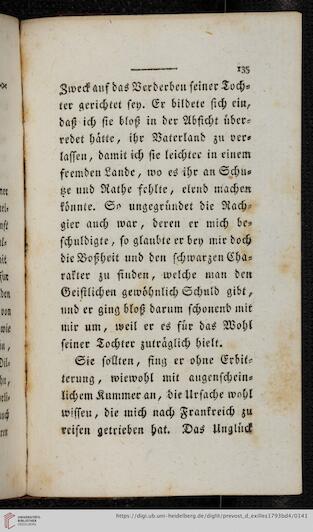 135
Zweck auf das Verderben seiner Toch-
ter gerichtet sey. Er bildete sich ein,
daß ich sie bloß in der Absicht über-
redet hätte, ihr Vaterland zu ver-
lassen, damit ich sie leichter in einem
fremden Lande, wo es ihr an Schu-
tze und Rathe fehlte, elend machen
könnte. So ungegründet die Rach-
gier auch war, deren er mich be-
schuldigte, so glaubte er bey mir doch
die Boßheit und den schwarzen Cha-
rakter zu finden, welche man den
Geistlichen gewöhnlich Schuld gibt,
und er ging bloß darum schonend mit
mir um, weil er es für das Wohl
seiner Tochter zuträglich hielt.
Sie sollten, fing er ohne Erbit-
terung, wiewohl mit augenschein-
lichem Kummer an, die Ursache wohl
wissen, die mich nach Frankreich zu
reisen getrieben hat. Das Unglück
https://digi.ub.uni-heidelberg.de/diglit/prevost_d_exiles1793bd4/0141
UNIVERSITÄTS-
BIBLIOTHEK
HEIDELBERG